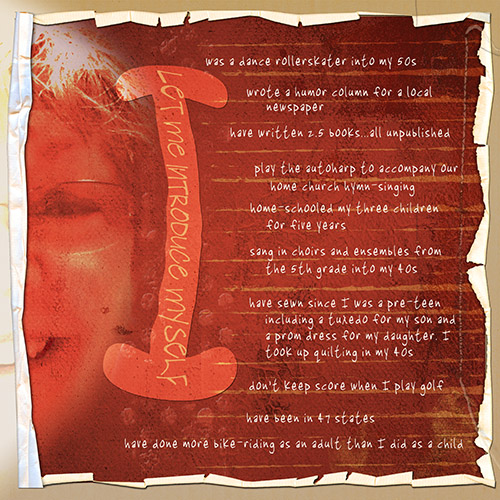 LET me INTRODUCE mYSELF
was a dance rollerskater into my 50s
wrote a humor column for a local
newspaper
have written 2.5 books...all unpublished
play the autoharp to accompany our
home church hymn-singing
home-schooled my three children
for five years
sang in choirs and ensembles from
the 5th grade into my 40s
have sewn since I was a pre-teen
including a tuxedo for my son and
a prom dress for my daughter. I
took up quilting in my 40s
don't keep score when I play golf
have been in 47 states
have done more bike-riding as an adult than I did as a child